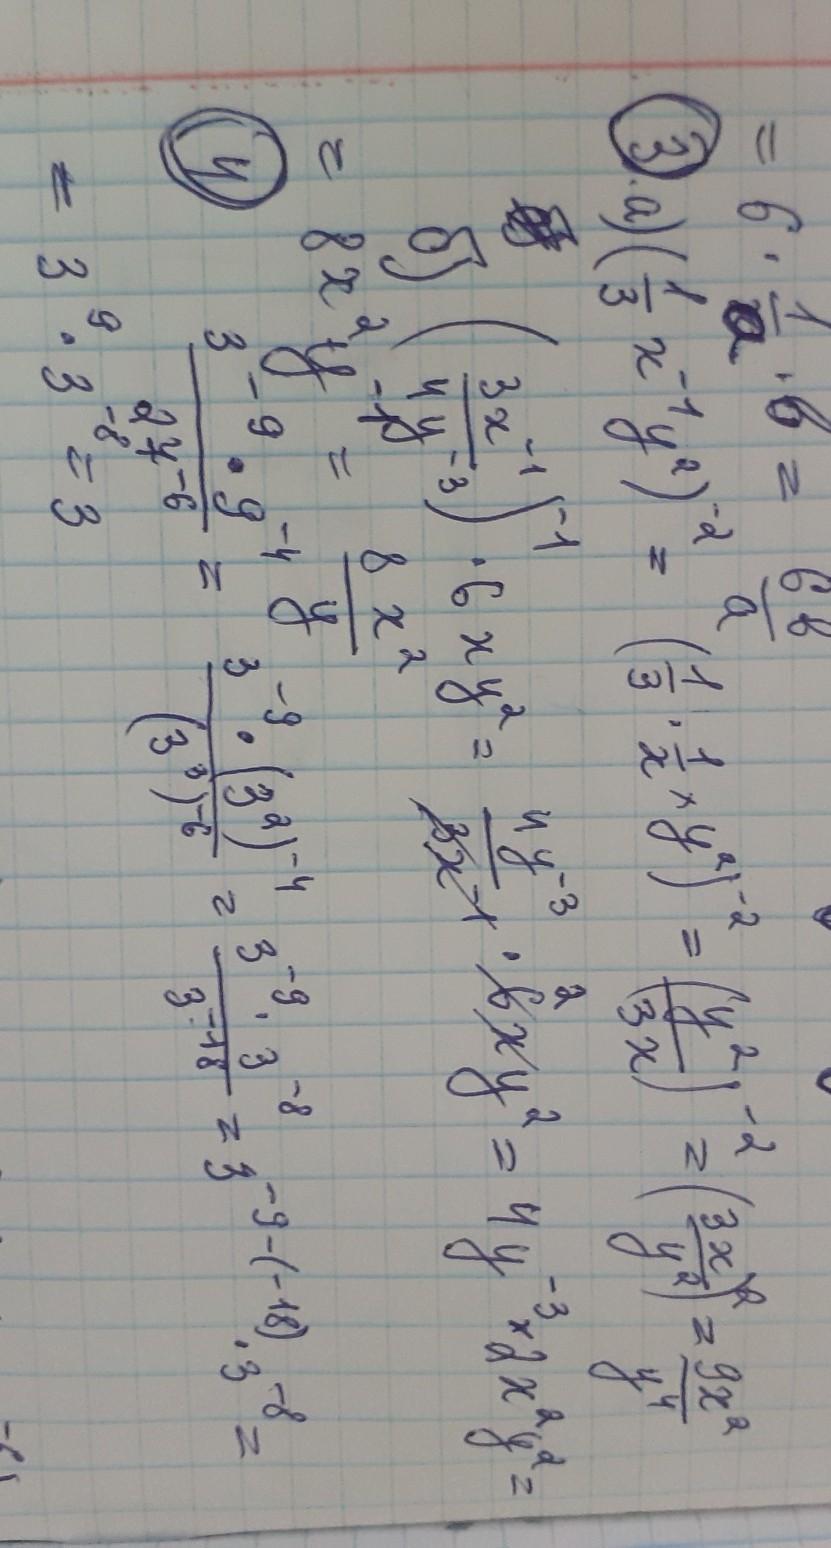 = 6 · 1/a · b = 6b/a
3. а) (1/3 x⁻¹y²)⁻² = (1/3 · 1/x × y²)⁻² = (y²/3x)⁻² = (3x/y²)² = 9x²/y⁴
б) (3x⁻¹/4y⁻³)⁻¹ · 6xy² = 4y⁻³/3x⁻¹ · 6xy² = 4y⁻³ × 2x²y² =
= 8x²y⁻¹ = 8x²/y
4 3⁻⁹ · 9⁻⁴/27⁻⁶ = 3⁻⁹ · (3²)⁻⁴/(3³)⁻⁶ = 3⁻⁹ · 3⁻⁸/3⁻¹⁸ = 3⁻⁹⁻⁽⁻¹⁸⁾ · 3⁻⁸ =
= 3⁹ · 3⁻⁸ = 3